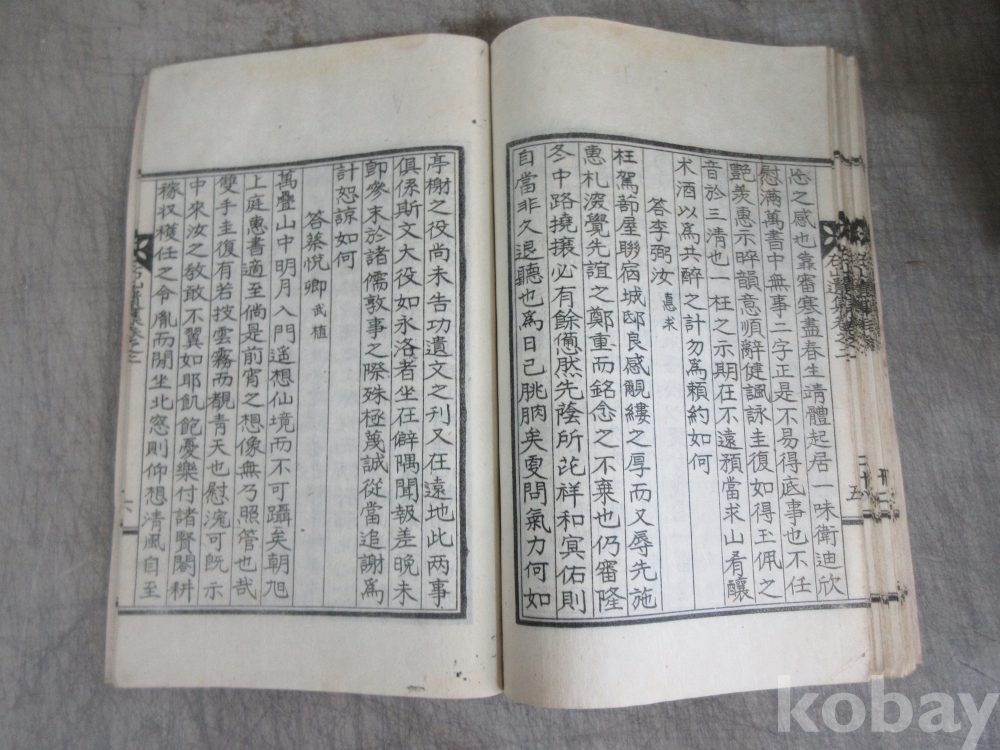 念之感也靠審寒盡春生靖體起居一味衛迪欣
慰滿萬書中無事二字正是不易得底事也不任
艷羨惠示晬韻意順辭健諷詠圭復如得玉佩之
音於三清也一枉之示期在不遠預當求山肴釀
术酒以爲共醉之計勿爲賴約如何
答李弼汝 憙求
枉駕蔀屋聯宿城邸良感覶縷之厚而又辱先施
惠札深覺先誼之鄭重而銘念之不棄也仍審隆
冬中路撓攘必有餘憊然先蔭所庇祥和冥佑則
自當非久退聽也爲日已朓朒矣更問氣力何如
五
亭榭之役尚未告功遺文之刊又在遠地此两事
俱係斯文大役如永洛者坐在僻隅聞報差晚未
卽參末於諸儒敦事之際殊極蔑誠從當追謝爲
計恕諒如何
答蔡悅卿 武植
萬疊山中明月入門遥想仙境而不可躡矣朝旭
上庭惠書適至倘是前宵之想像無乃照管也哉
雙手圭復有若披雲霧而覩青天也慰浣可旣示
中來汝之教敢不翼如耶飢飽憂樂付諸賢閤耕
稼收穫任之令胤而閒坐北窓則仰想清風自至
六
kobay